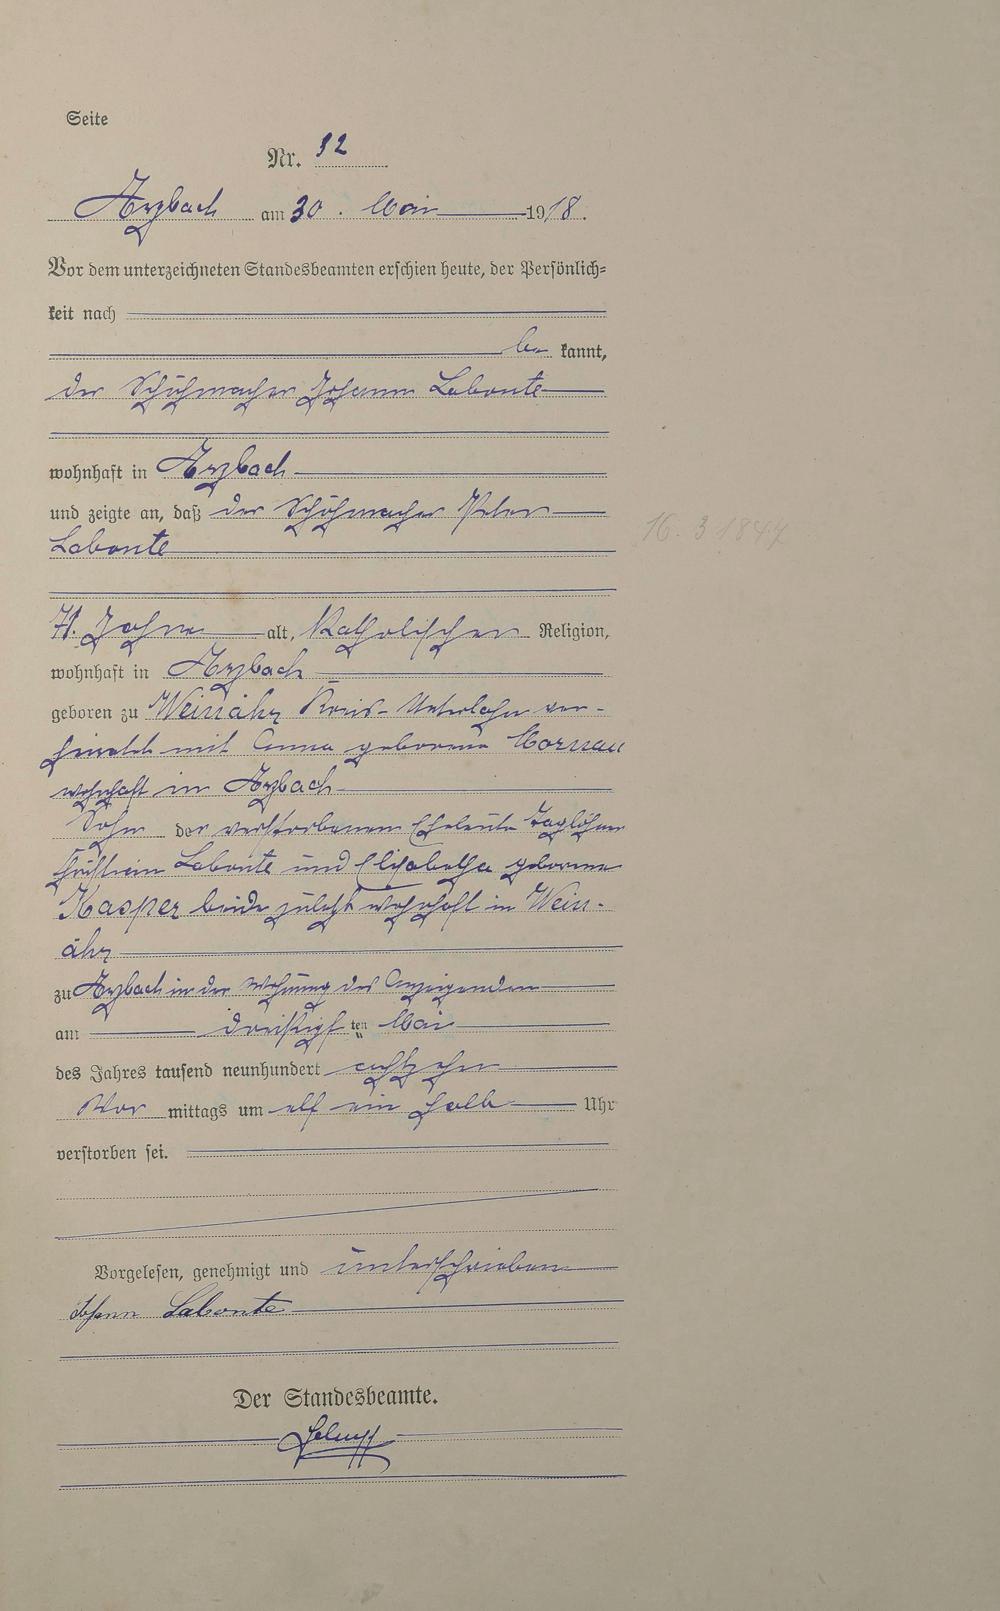 Seite
Nr. 32
Arzbach am 30. Mai 1918.
Vor dem unterzeichneten Standesbeamten erschien heute, der Persönlich-
keit nach
be kannt,
der Schuhmacher Johann Labonte
wohnhaft in Arzbach
und zeigte an, daß der Schuhmacher Peter
Labonte
16. 3 1847
71. Jahre alt, Katholischer Religion,
wohnhaft in Arzbach
geboren zu Weinähr Kreis Unterlahn ver-
heiratet mit Anna geborene Mornau
wohnhaft in Arzbach
Sohn der verstorbenen Eheleute Taglöhner
Labonte und Elisabetha geborene
Kasper beide zuletzt wohnhaft in Wein-
ähr
zu Arzbach in der Wohnung des Anzeigenden
am dreißigsten Mai
des Jahres tausend neunhundert achtzehn
Vor mittags um elf ein halb Uhr
verstorben sei.
Vorgelesen, genehmigt und unterschrieben
Johann Labonte
Der Standesbeamte.